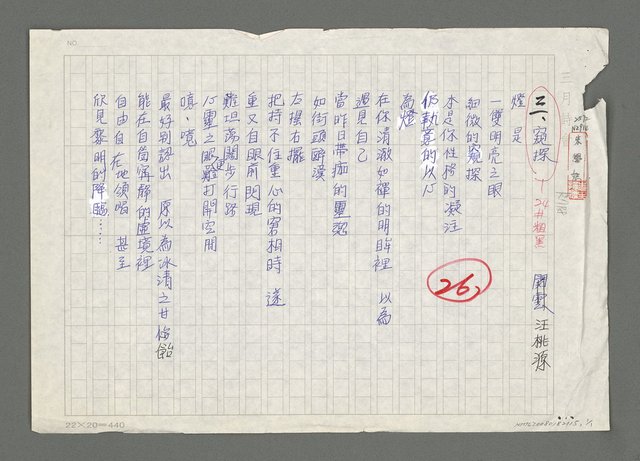 NO
三、窺探
24#粗黑
開雲 汪桃源
燈是
一雙明亮之眼
細微的窺探
本是你性格的凝注
仍執意的以心
為燈
在你清澈如礫的明眸裡 以為
遇見自己
當昨日帶痂的靈認
如街頭醉漢
左搖右擺
把持不住重心的窘相時 遂
重又自眼前閃現
難坦蕩闊步行路
心靈之眼難打開空間
嗔、嗅
最好別認出 原以為冰清之甘飴
能在自箇寧靜的虛境裡
自由自在地領唱 甚至
欣見黎明的降臨……
26
22×20=440